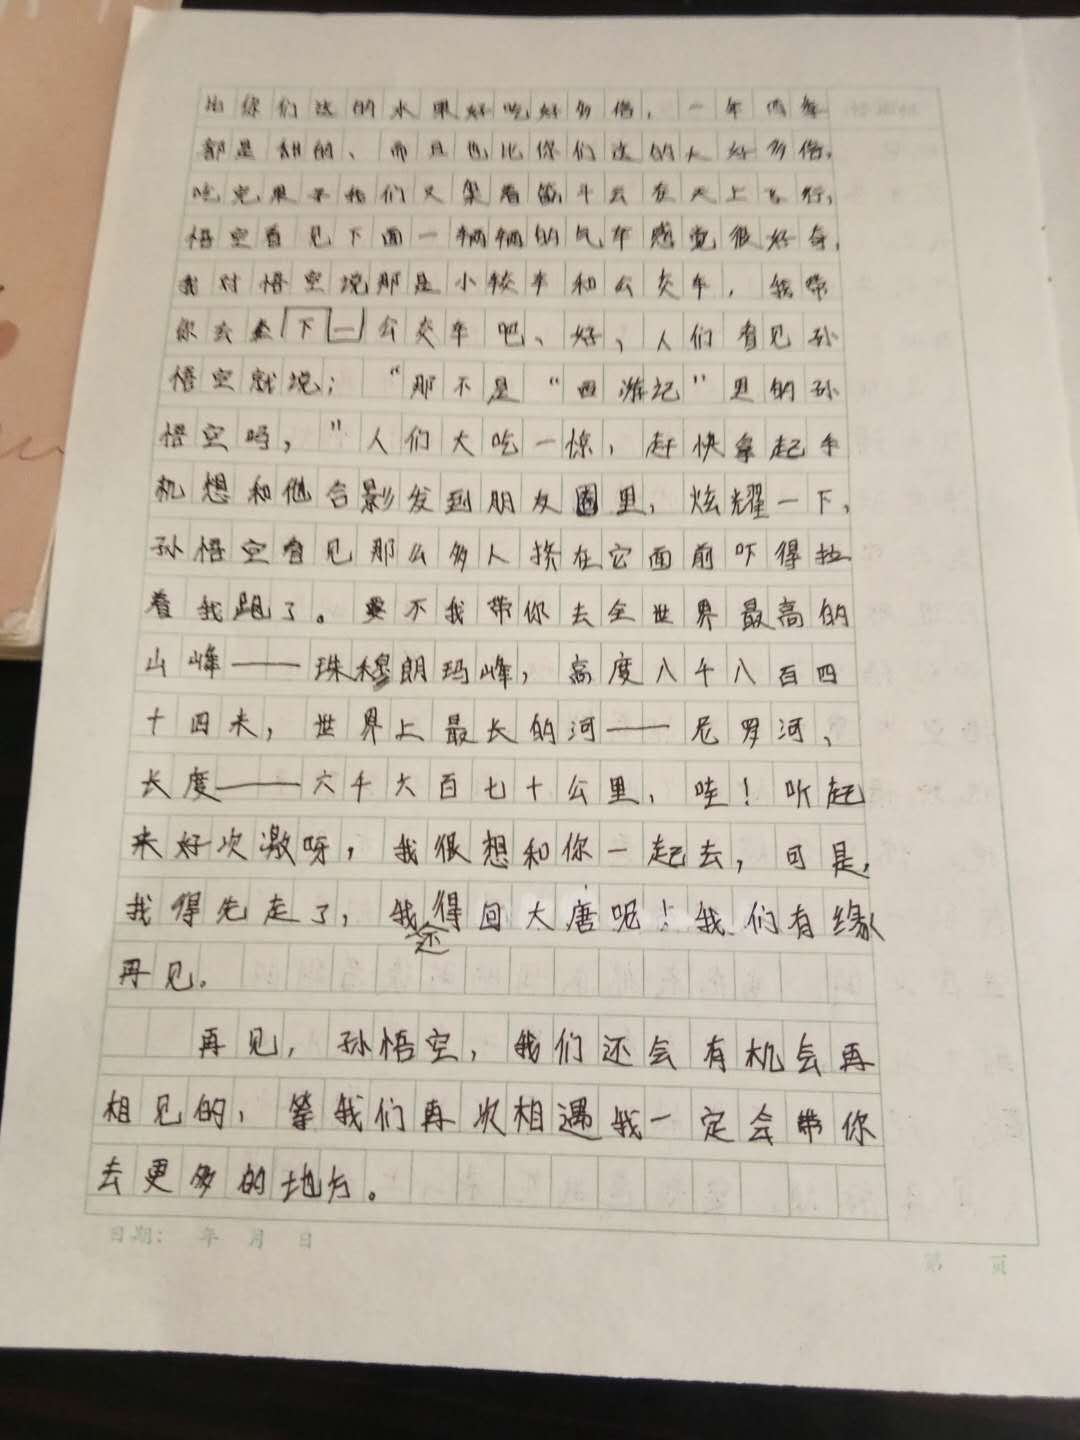 比你们这的水果好吃好多倍，一年四季
都是甜的、而且也比你们这的大好多倍，
吃完果子我们又架着筋斗云在天上飞行，
悟空看见下面一辆辆的气车感觉很好奇，
我对悟空说那是小轿车和公交车，我带
你去坐下一公交车吧、好，人们看见孙
悟空就说；“那不是“西游记”里的孙
悟空吗，”人们大吃一惊，赶快拿起手
机想和他合影发到朋友圈里，炫耀一下，
孙悟空看见那么多人挤在它面前吓得拉
着我跑了。要不我带你去全世界最高的
山峰——珠穆朗玛峰，高度八千八百四
十四米，世界上最长的河——尼罗河、
长度——六千六百七十公里，哇！听起
来好次激呀，我很想和你一起去，可是，
我得先走了，我还得回大唐呢！我们有缘
再见。
再见，孙悟空，我们还会有机会再
相见的，等我们再次相遇我一定会带你
去更多的地方。
日期： 年 月 日
第 页